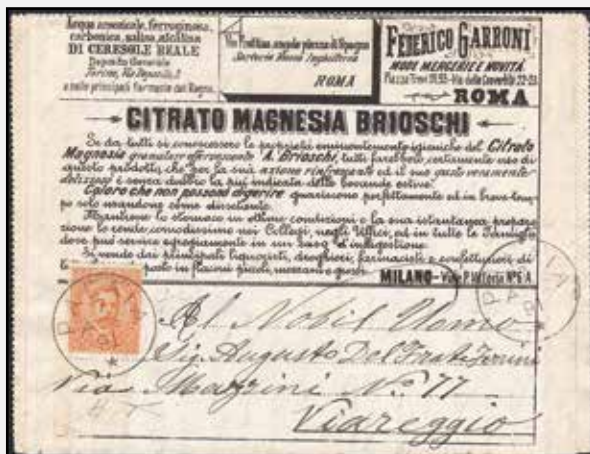 Acqua arsenicale, ferruginosa,
carbonica, salina, alcalina
DI CERESOLE REALE
Deposito Generale
Torino, Via
e nelle principali Farmacie del Regno.
Via Frattina, angolo piazza di Spagna
Sartoria Nuova Inghilterra
ROMA
FEDERICO GARRONI
MODE MERCERIE E NOVITÀ
ROMA
CITRATO MAGNESIA BRIOSCHI
Se da tutti si conoscessero le proprietà eminentemente igieniche del Citrato
Magnesia granulare effervescente A. Brioschi, tutti farebbero certamente uso di
questo prodotto, che per la sua azione rinfrescante ed il suo gusto veramente
delizioso è senza dubbio la più indicata delle bevande estive.
Coloro che non possono digerire guariscono perfettamente ed in breve tem-
po solo usandone come dissetante.
Mantiene lo stomaco in ottime condizioni e la sua istantanea prepara-
zione lo rende comodissimo nei Collegi, negli Uffici, ed in tutte le Famiglie
dove può servire egregiamente in un caso d'indigestione.
Si vende dai principali liquoristi, droghieri, farmacisti e confetturieri di
posto in flaconi piccoli, mezzani e grossi.
MILANO
Al Nobil Uomo
Sig. Augusto Del Frate
Via Mazzini No. 77
Viareggio